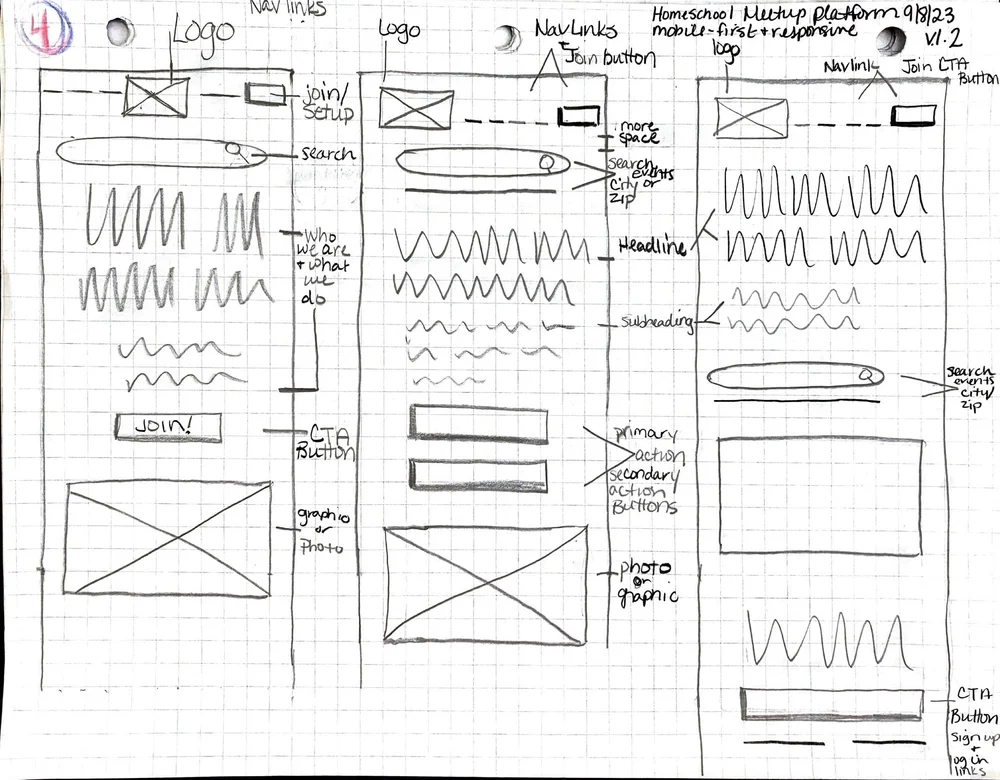 4
Nav links
Logo
join/
setup
search
who
we are
+ what
we
do
JOIN!
CTA
Button
graphic
or
Photo
Logo
Nav Links
Join button
more
space
search
events
city or
zip
Headline
subheading
primary
action
secondary
action
Buttons
photo
or
graphic
Homeschool Meetup platform 9/8/23
mobile-first + responsive
v.1.2
logo
Navlink
Join CTA
Button
search
events
city/
zip
CTA
Button
sign up
+
log in
links